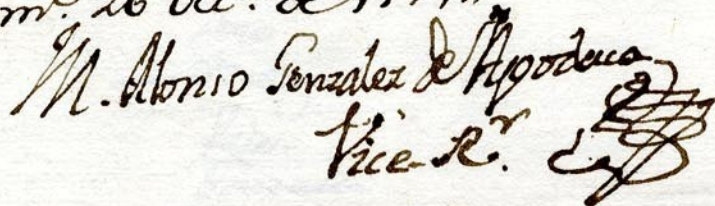 26 de
M. Alonso Gonzalez de Apodaca
Vice-R.r